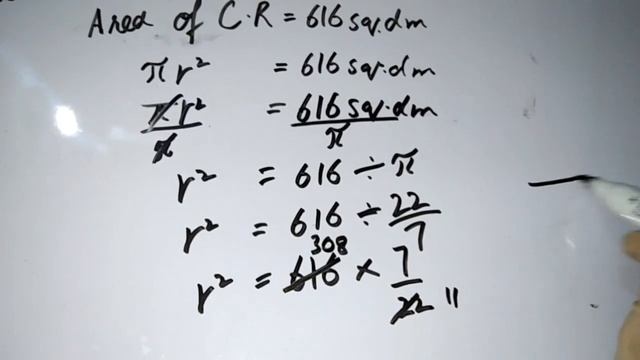 Area of C.R = 616 sq.dm
πr² = 616 sq.dm
πr²/π = 616 sq.dm/π
r² = 616 ÷ π
r² = 616 ÷ 22/7
308
r² = 616 × 7/22 11